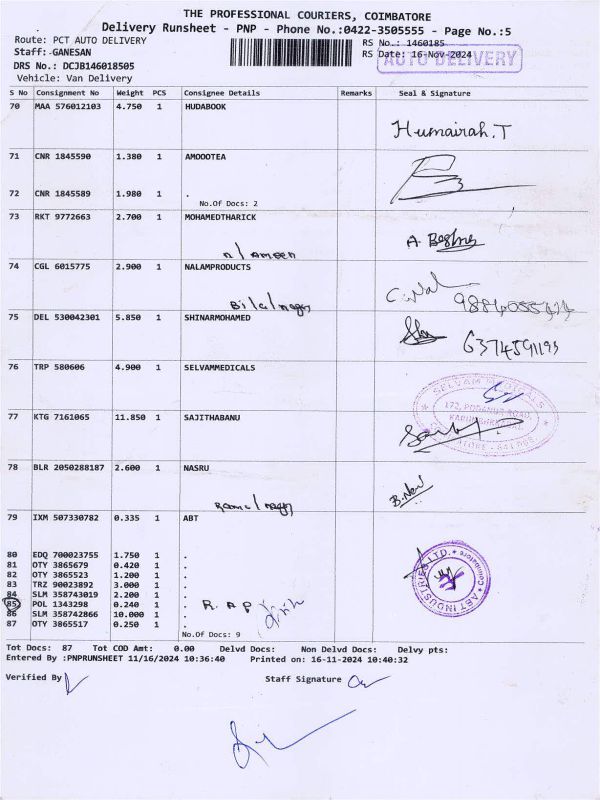 THE PROFESSIONAL COURIERS, COIMBATORE
Delivery Runsheet - PNP - Phone No.:0422-3505555 - Page No.:5
Route: PCT AUTO DELIVERY RS No.: 1460185
Staff: GANESAN RS Date: 16-Nov-2024
AUTO DELIVERY
DRS No.: DCJB146018505
Vehicle: Van Delivery
S No Consignment No Weight PCS Consignee Details Remarks Seal & Signature
70 MAA 576012103 4.750 1 HUDABOOK
Humairah.T
71 CNR 1845590 1.380 1 AMOOOTEA
72 CNR 1845589 1.980 1 .
No.Of Docs: 2
73 RKT 9772663 2.700 1 MOHAMEDTHARICK
n/ Ameen
74 CGL 6015775 2.900 1 NALAMPRODUCTS
Bilal nagar
75 DEL 530042301 5.850 1 SHINARMOHAMED
6374591193
76 TRP 580606 4.900 1 SELVAMMEDICALS
SELVAM MEDICALS
172, PODANUR ROAD,
77 KTG 7161065 11.850 1 SAJITHABANU
78 BLR 2050288187 2.600 1 NASRU
nagar
79 IXM 507330782 0.335 1 ABT
80 EDQ 700023755 1.750 1 .
81 OTY 3865679 0.420 1 .
82 OTY 3865523 1.200 1 .
83 TRZ 90023892 3.000 1 .
84 SLM 358743019 2.200 1 .
85 POL 1343298 0.240 1 . R.A.P
86 SLM 358742866 10.000 1 .
87 OTY 3865517 0.250 1 .
ABT INDUSTRIES LTD. Coimbatore
No.Of Docs: 9
Tot Docs: 87 Tot COD Amt: 0.00 Delvd Docs: Non Delvd Docs: Delvy pts:
Entered By :PNPRUNSHEET 11/16/2024 10:36:40 Printed on: 16-11-2024 10:40:32
Verified By Staff Signature